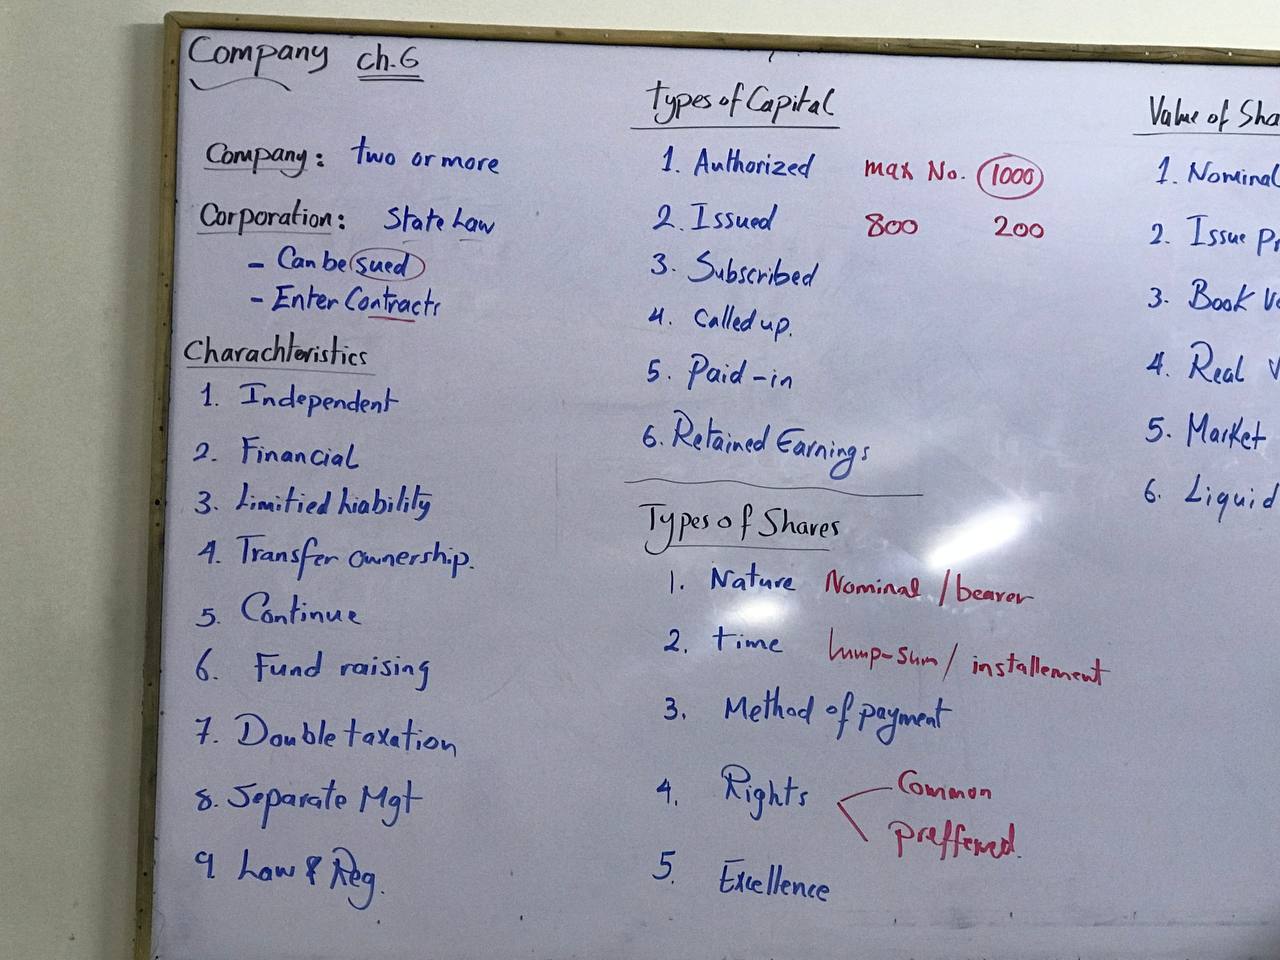 Company ch.6
Company: two or more
Corporation: State Law
- Can be sued
- Enter Contracts
Charachteristics
1. Independent
2. Financial
3. Limitied Liability
4. Transfer ownership.
5. Continue
6. Fund raising
7. Double taxation
8. Separate Mgt
9 Law & Reg.
Types of Capital
1. Authorized max No. 1000
2. Issued 800 200
3. Subscribed
4. Called up.
5. Paid-in
6. Retained Earnings
Types of Shares
1. Nature Nominal / bearer
2. time lump-sum / installement
3. Method of payment
4. Rights Common
preffered.
5. Excellence
Value of Sha
1. Nominal
2. Issue Pr
3. Book V
4. Real V
5. Market
6. Liquid